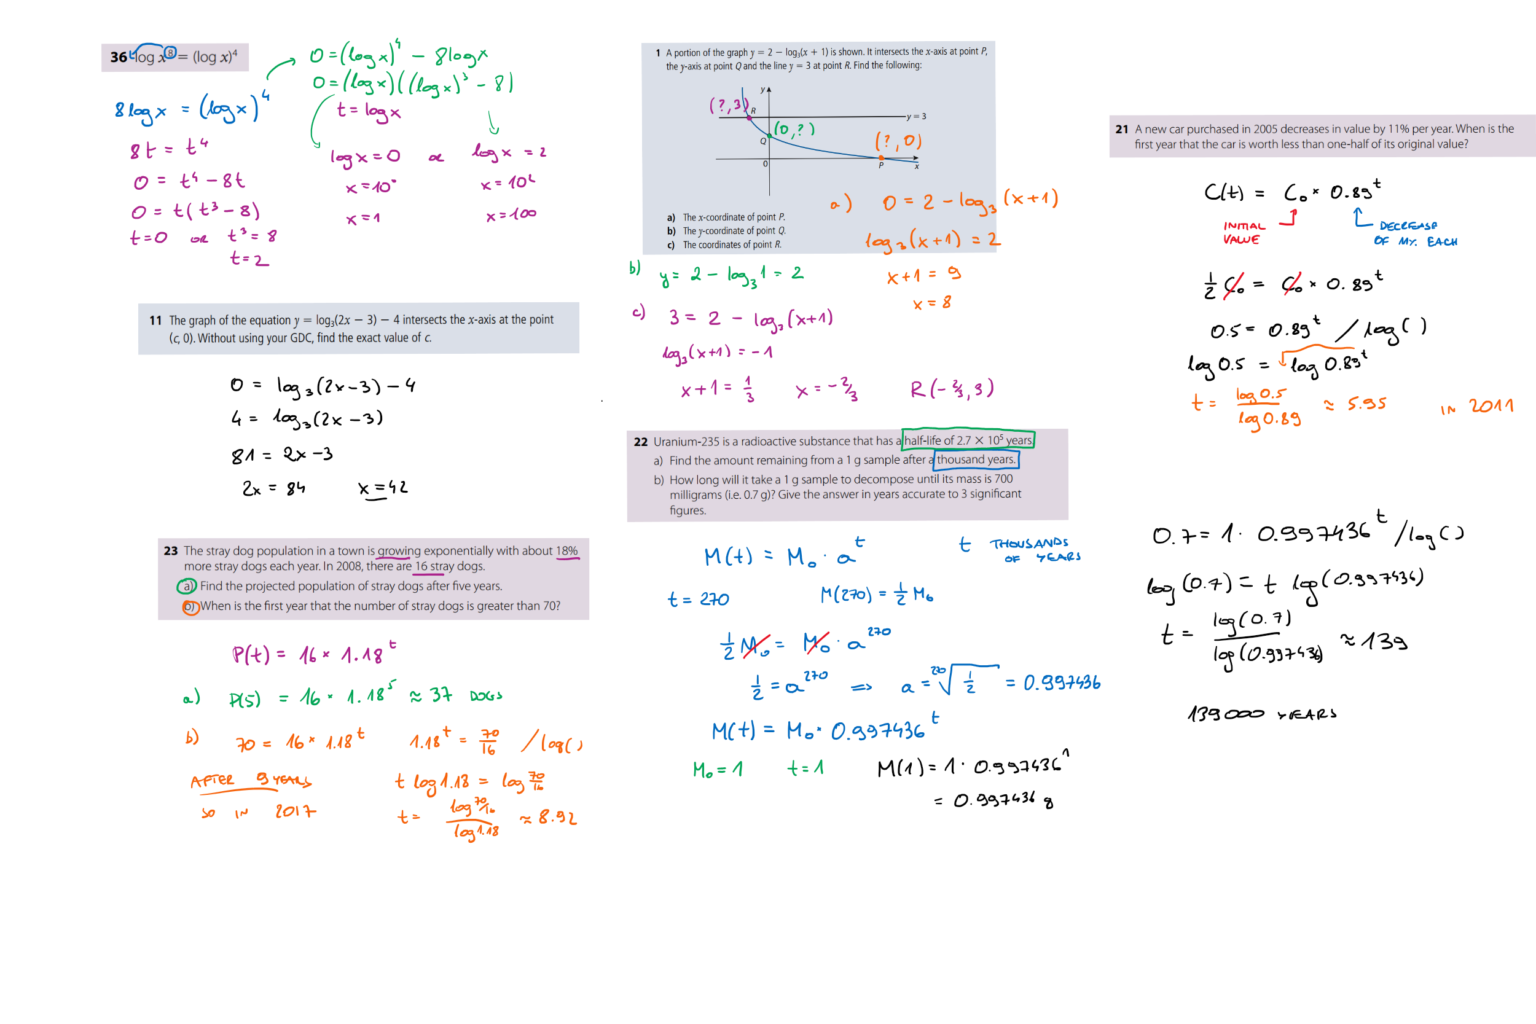 36 log x⁸ = (log x)⁴
8 log x = (log x)⁴
8t = t⁴
0 = t⁴ - 8t
0 = t(t³ - 8)
t = 0 OR t³ = 8
t = 2
0 = (log x)⁴ - 8 log x
0 = (log x)((log x)³ - 8)
t = log x
log x = 0 OR log x = 2
x = 10⁰ x = 10²
x = 1 x = 100
11 The graph of the equation y = log₃(2x − 3) − 4 intersects the x-axis at the point
(c, 0). Without using your GDC, find the exact value of c.
0 = log₃(2x-3) - 4
4 = log₃(2x-3)
81 = 2x - 3
2x = 84 x = 42
23 The stray dog population in a town is growing exponentially with about 18%
more stray dogs each year. In 2008, there are 16 stray dogs.
a) Find the projected population of stray dogs after five years.
b) When is the first year that the number of stray dogs is greater than 70?
P(t) = 16 * 1.18ᵗ
a) P(5) = 16 · 1.18⁵ ≈ 37 DOGS
b) 70 = 16 * 1.18ᵗ 1.18ᵗ = 70/16 / log( )
AFTER 9 YEARS t log 1.18 = log 70/16
SO IN 2017 t = log 70/16 / log 1.18 ≈ 8.92
1 A portion of the graph y = 2 − log₃(x + 1) is shown. It intersects the x-axis at point P,
the y-axis at point Q and the line y = 3 at point R. Find the following:
y
(?, 3) R
y = 3
(0, ?)
Q
(?, 0)
0 P x
a) The x-coordinate of point P.
b) The y-coordinate of point Q.
c) The coordinates of point R.
a) 0 = 2 - log₃(x+1)
log₃(x+1) = 2
x+1 = 9
x = 8
b) y = 2 - log₃1 = 2
c) 3 = 2 - log₃(x+1)
log₃(x+1) = -1
x+1 = 1/3 x = -2/3 R(-2/3, 3)
22 Uranium-235 is a radioactive substance that has a half-life of 2.7 × 10⁵ years.
a) Find the amount remaining from a 1 g sample after a thousand years.
b) How long will it take a 1 g sample to decompose until its mass is 700
milligrams (i.e. 0.7 g)? Give the answer in years accurate to 3 significant
figures.
M(t) = M₀ · aᵗ t THOUSANDS
OF YEARS
t = 270 M(270) = 1/2 M₀
1/2 M₀ = M₀ · a²⁷⁰
1/2 = a²⁷⁰ => a = ²⁷⁰√1/2 = 0.997436
M(t) = M₀ · 0.997436ᵗ
M₀ = 1 t = 1 M(1) = 1 · 0.997436¹
= 0.997436 g
21 A new car purchased in 2005 decreases in value by 11% per year. When is the
first year that the car is worth less than one-half of its original value?
C(t) = C₀ * 0.89ᵗ
INITIAL
VALUE
DECREASE
OF 11% EACH
1/2 C₀ = C₀ * 0.89ᵗ
0.5 = 0.89ᵗ / log( )
log 0.5 = log 0.89ᵗ
t = log 0.5 / log 0.89 ≈ 5.95 IN 2011
0.7 = 1 · 0.997436ᵗ / log( )
log(0.7) = t log(0.997436)
t = log(0.7) / log(0.997436) ≈ 139
139000 YEARS